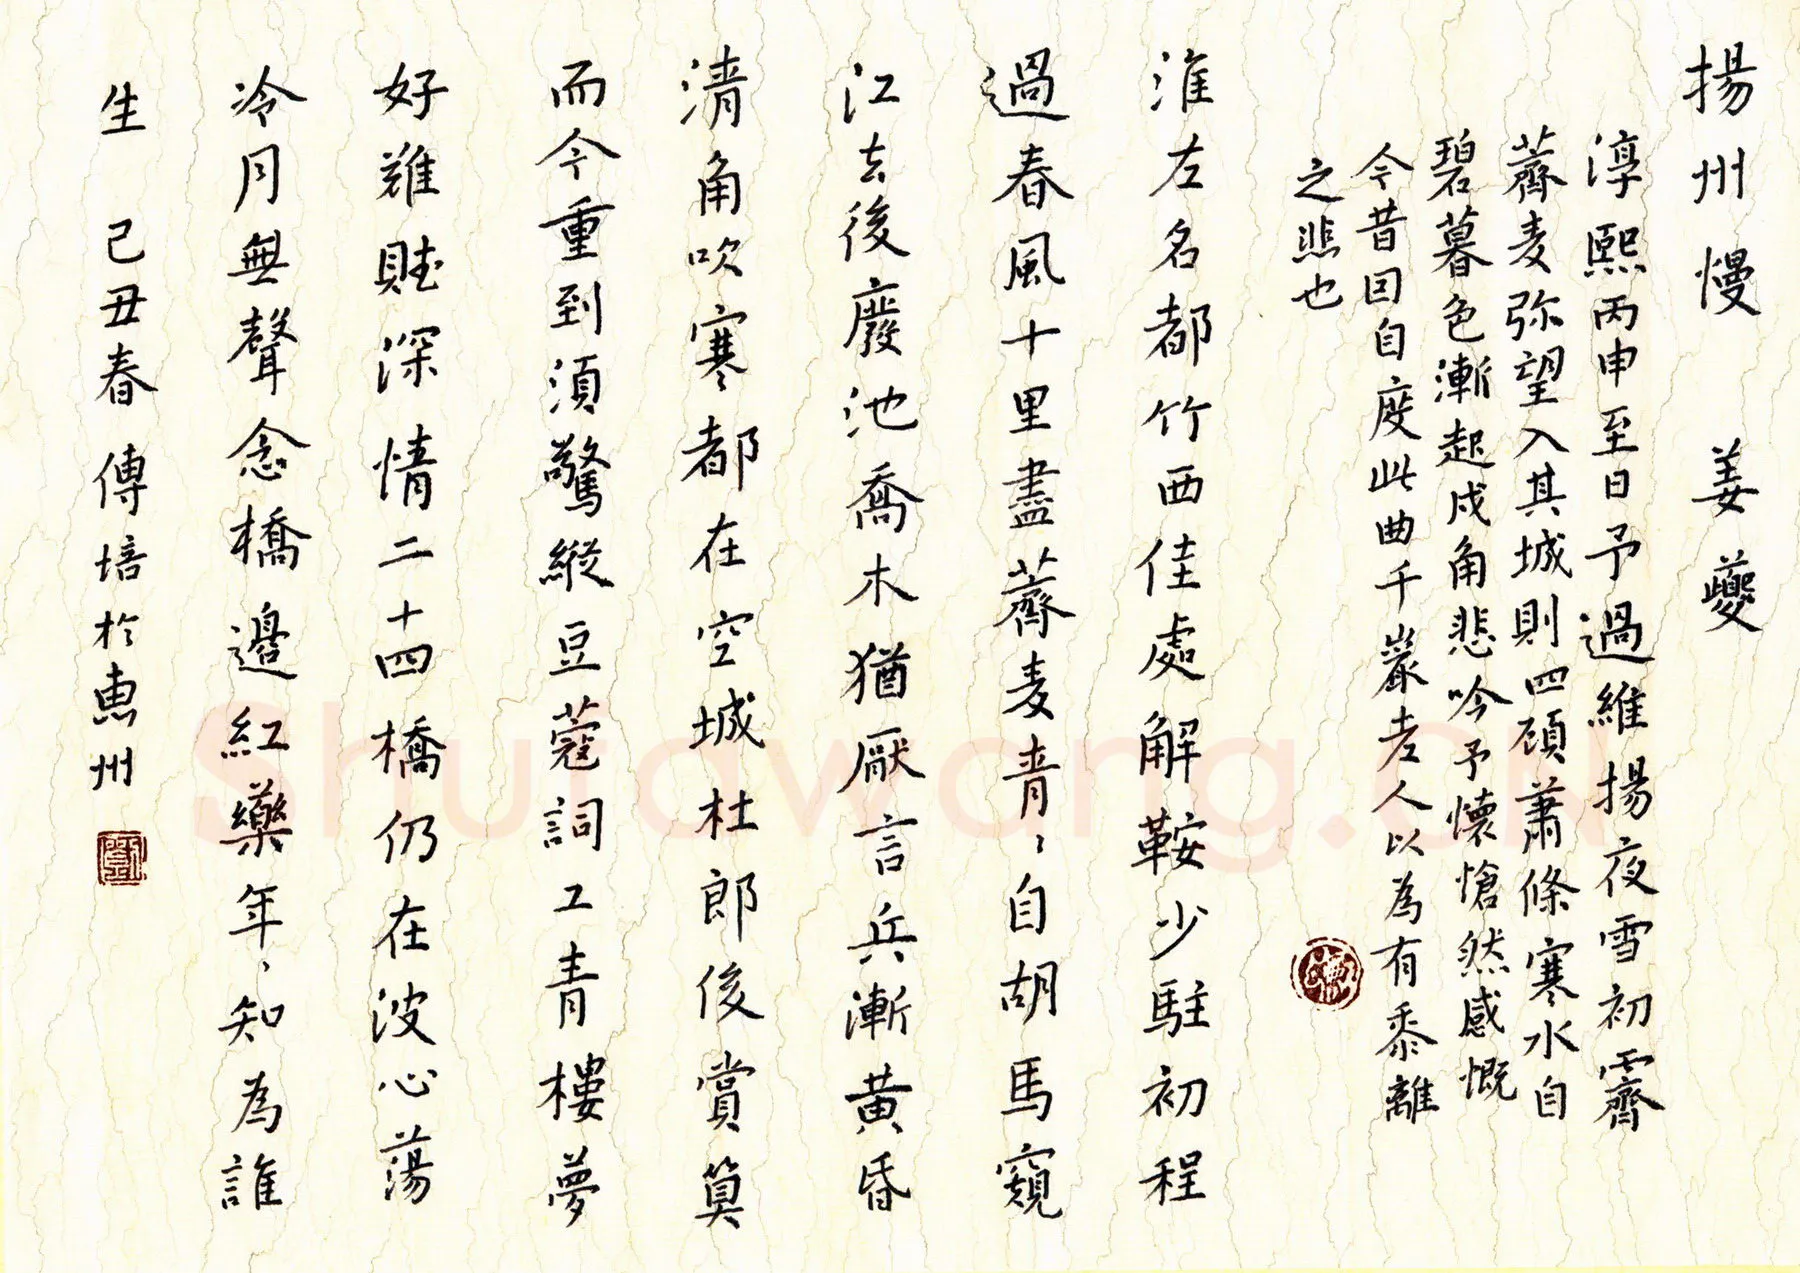 揚州慢 姜夔
淳熙丙申至日予過維揚夜雪初霽
薺麦弥望入其城則四顧蕭條寒水自
碧暮色漸起戍角悲吟予懷愴然感慨
今昔回自度此曲千巖老人以為有黍離
之悲也
淮左名都竹西佳處解鞍少駐初程
過春風十里盡薺麦青、自胡馬窺
江去後廢池喬木猶厭言兵漸黃昏
清角吹寒都在空城杜郎後賞算
而今重到須驚縱豆蔻詞工青樓夢
好難賦深情二十四橋仍在波心蕩
冷月無聲念橋邊紅藥年、知為誰
生 己丑春傅培於惠州
Shufawang.CN